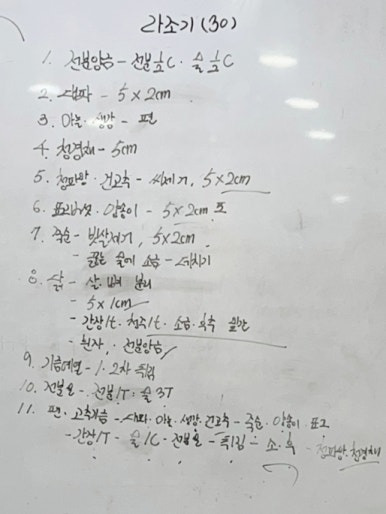 라조기 (30)
1. 전분앙금 - 전분½C · 물½C
2. 대파 - 5×2cm
3. 마늘 · 생강 - 편
4. 청경채 - 5cm
5. 청피망 · 건고추 - 씨제거, 5×2cm
6. 표고버섯 · 양송이 - 5×2cm
7. 죽순 - 빗살제거, 5×2cm
- 끓는 물에 소금 - 데치기
8. 닭 - 살, 뼈 분리
- 5×1cm
- 간장1t · 청주1t · 소금 · 후추 밑간
- 흰자, 전분앙금
9. 기름예열 - 1 · 2차 튀김
10. 전분물 - 전분1T : 물3T
11. 팬 · 고추기름 - 대파 · 마늘 · 생강 · 건고추 - 죽순 · 양송이 · 표고
- 간장1T - 물1C - 전분물 - 튀김 - 소 · 후 - 청피망 · 청경채